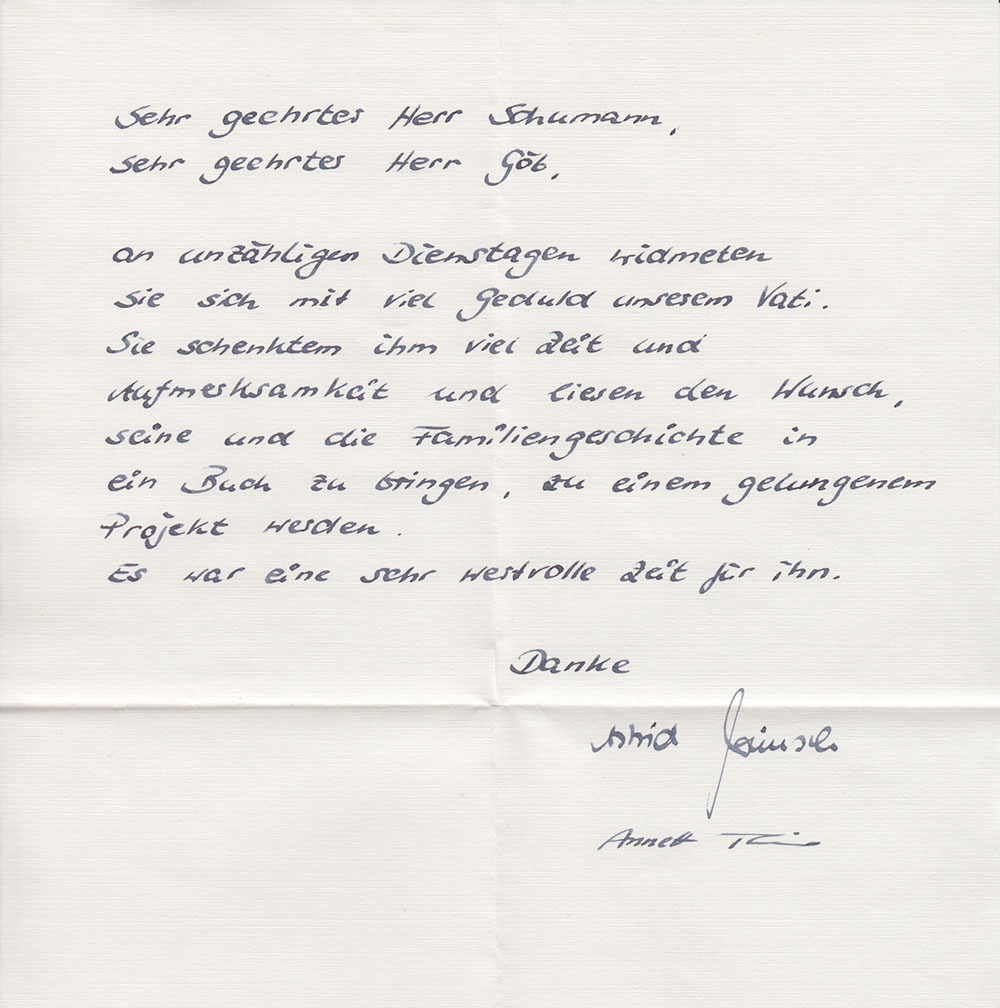 Sehr geehrter Herr Schumann,
sehr geehrter Herr Göb,
an unzähligen Dienstagen widmeten
Sie sich mit viel Geduld unserem Vati.
Sie schenkten ihm viel Zeit und
Aufmerksamkeit und liesen den Wunsch,
seine und die Familiengeschichte in
ein Buch zu bringen, zu einem gelungenem
Projekt werden.
Es war eine sehr wertvolle Zeit für ihn.
Danke
Astrid
Annett